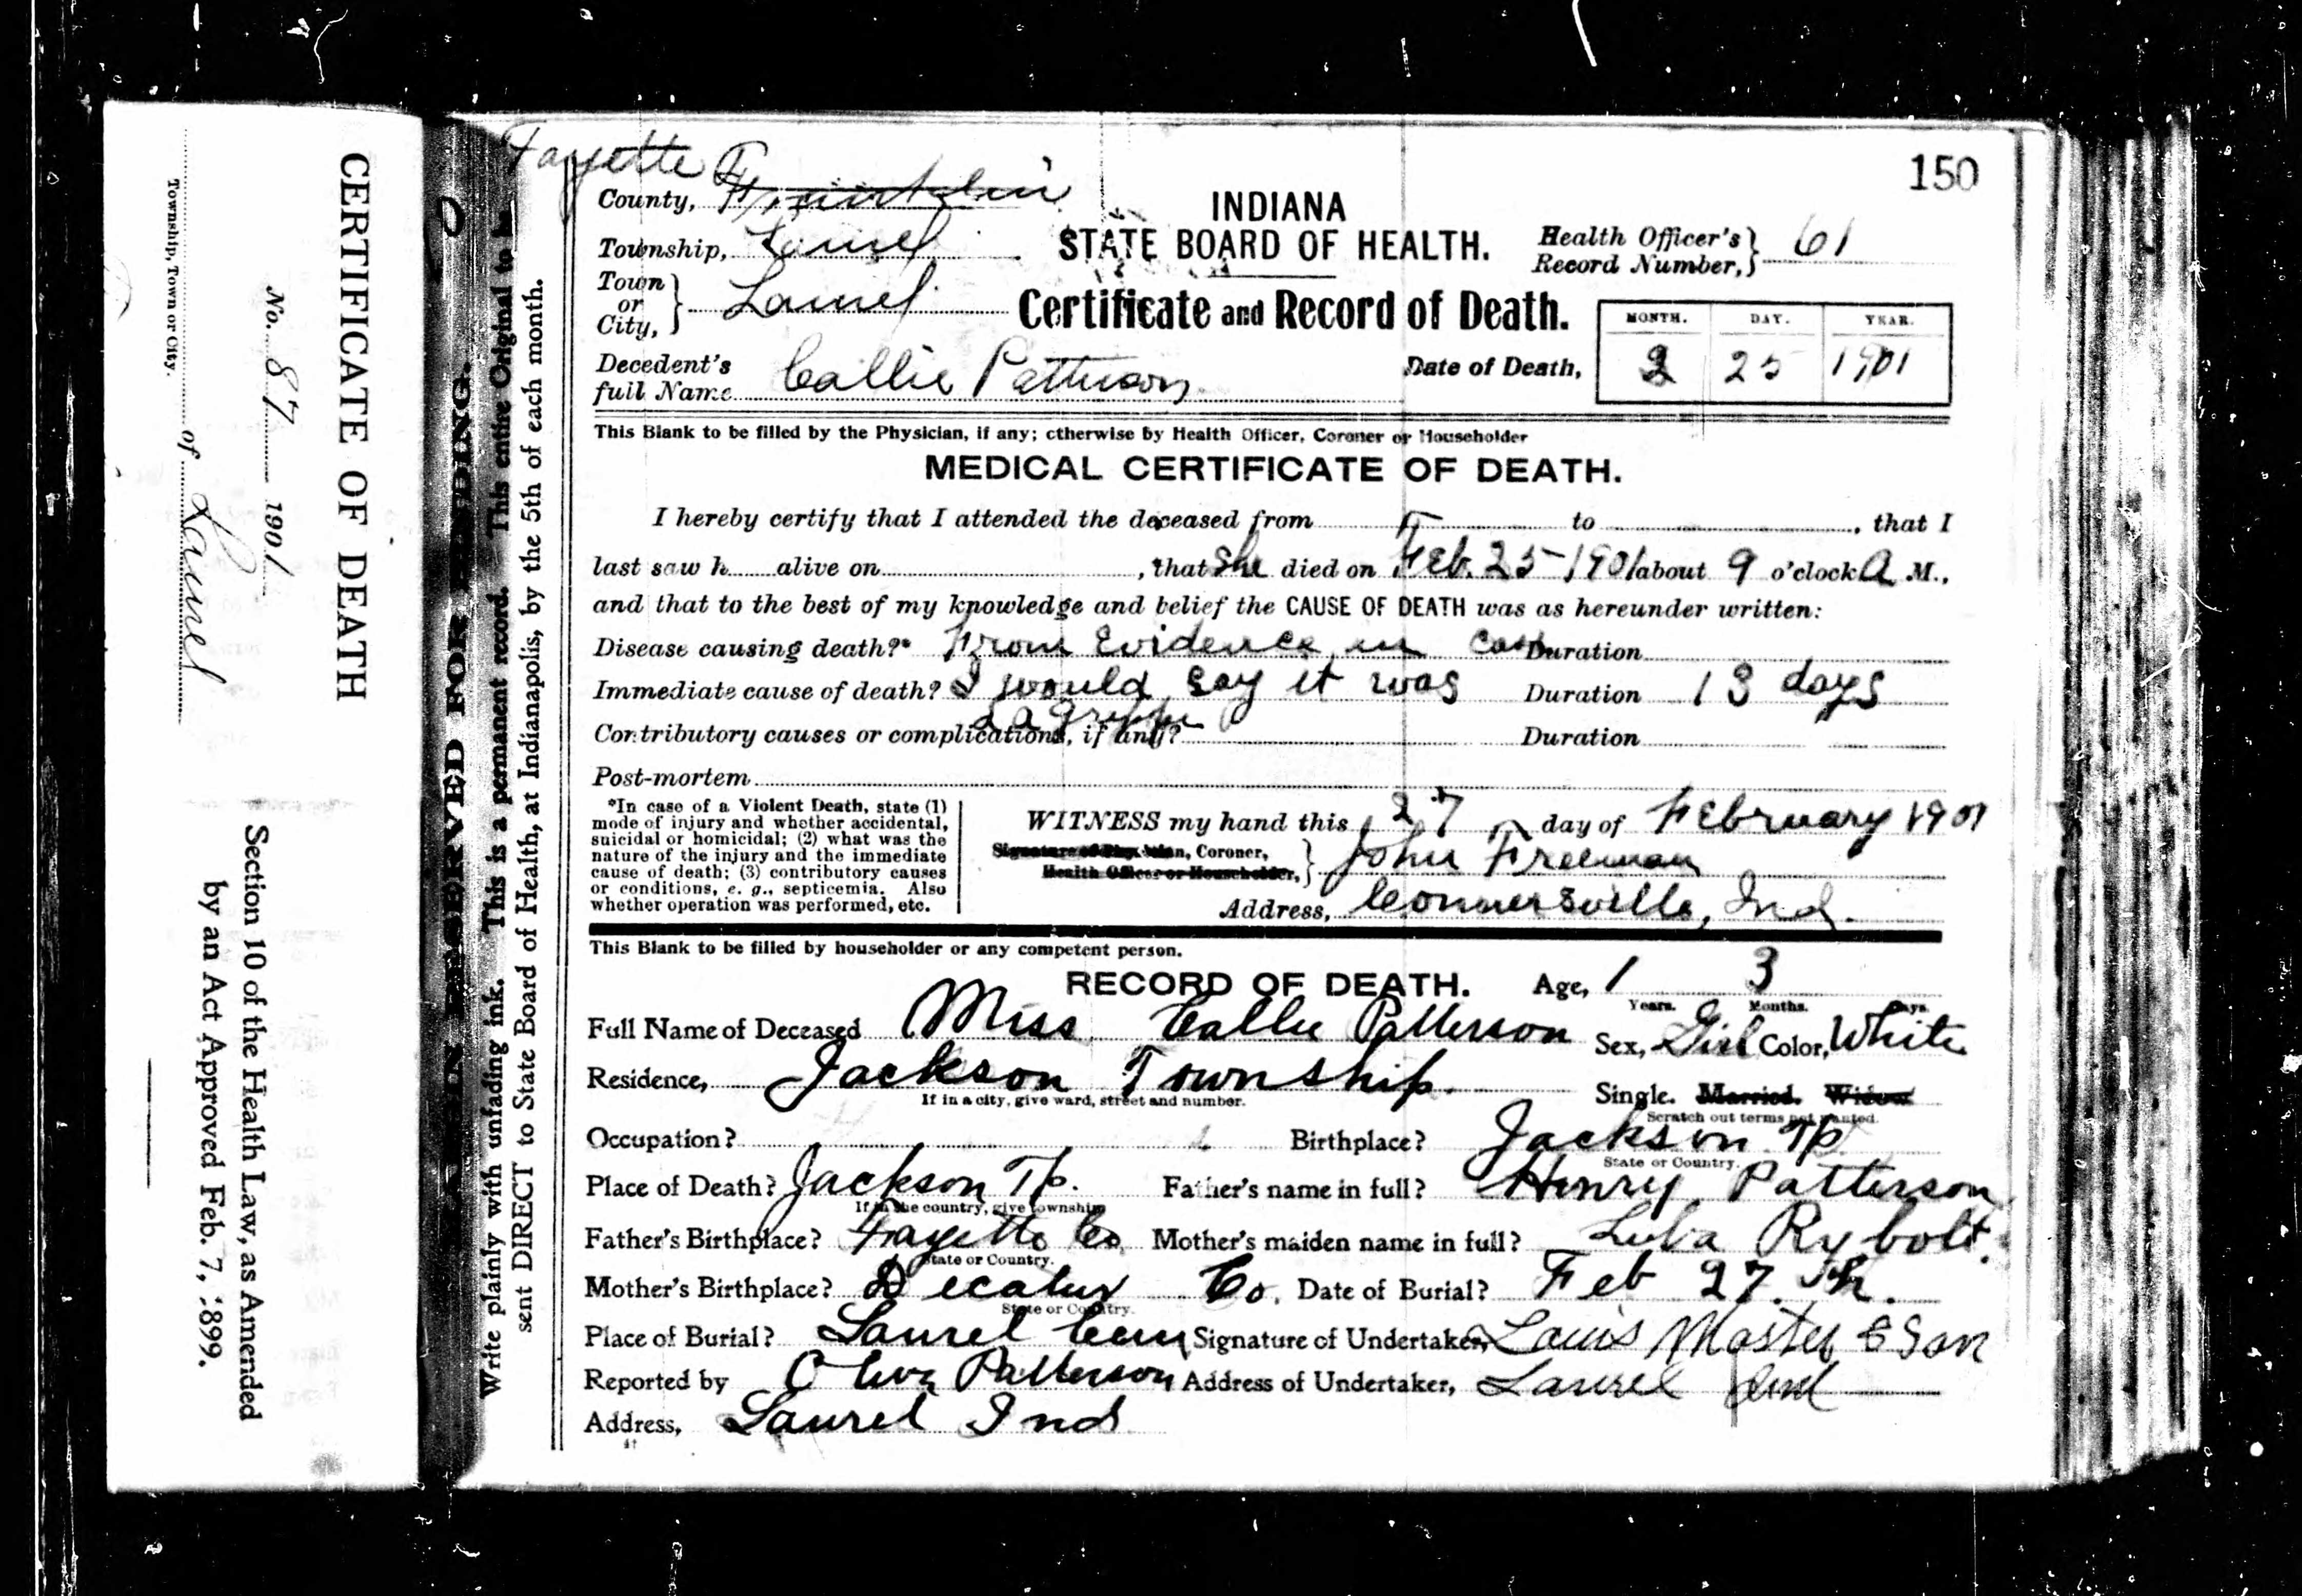 CERTIFICATE OF DEATH
No. 87 1901
of Laurel
Township, Town or City.
Section 10 of the Health Law, as Amended
by an Act Approved Feb. 7, 1899.
Write plainly with unfading ink. This is a permanent record. This entire Original to be
sent DIRECT to State Board of Health, at Indianapolis, by the 5th of each month.
150
Fayette
County, Franklin
INDIANA
Township, Laurel
STATE BOARD OF HEALTH.
Health Officer's Record Number, 61
Town or City, Laurel
Certificate and Record of Death.
MONTH. DAY. YEAR.
Decedent's full Name Callie Patterson
Date of Death, 2 25 1901
This Blank to be filled by the Physician, if any; otherwise by Health Officer, Coroner or Householder
MEDICAL CERTIFICATE OF DEATH.
I hereby certify that I attended the deceased from to , that I
last saw h alive on , that She died on Feb. 25 - 1901 about 9 o'clock A M.,
and that to the best of my knowledge and belief the CAUSE OF DEATH was as hereunder written:
Disease causing death?* From Evidence in case Duration
Immediate cause of death? I would say it was Duration 13 days
La Grippe
Contributory causes or complications, if any? Duration
Post-mortem
*In case of a Violent Death, state (1)
mode of injury and whether accidental,
suicidal or homicidal; (2) what was the
nature of the injury and the immediate
cause of death; (3) contributory causes
or conditions, e. g., septicemia. Also
whether operation was performed, etc.
WITNESS my hand this 27 day of February 1901
Signature of Physician, Coroner,
Health Officer or Householder, John Freeman
Address, Connersville, Ind.
This Blank to be filled by householder or any competent person.
RECORD OF DEATH. Age, 1 3
Years. Months. Days.
Full Name of Deceased Miss Callie Patterson Sex, Girl Color, White
Residence, Jackson Township. Single. Married. Widow
If in a city, give ward, street and number. Scratch out terms not wanted.
Occupation? Birthplace? Jackson Tp.
State or Country.
Place of Death? Jackson Tp. Father's name in full? Henry Patterson
If in the country, give township
Father's Birthplace? Fayette Co. Mother's maiden name in full? Rybolt.
State or Country.
Mother's Birthplace? Decatur Co. Date of Burial? Feb 27. th.
State or Country.
Place of Burial? Laurel Cem Signature of Undertaker, Louis Master & Son
Reported by Patterson Address of Undertaker, Laurel Ind
Address, Laurel Ind